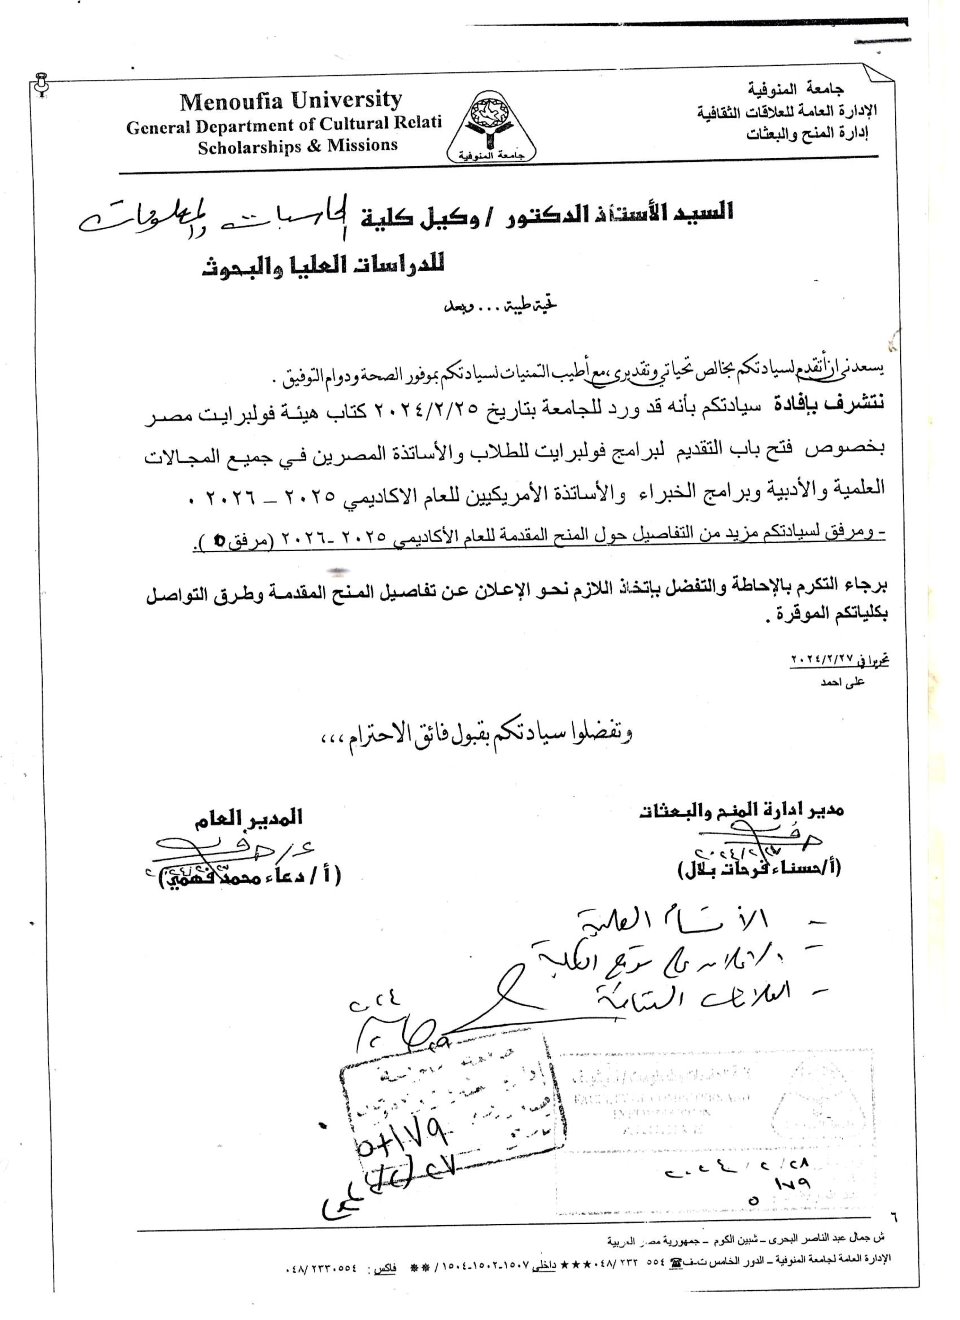 Menoufia University
General Department of Cultural Relati
Scholarships & Missions
جامعة المنوفية
جامعة المنوفية
الإدارة العامة للعلاقات الثقافية
إدارة المنح والبعثات
السيد الأستاذ الدكتور / وكيل كلية الحاسبات والمعلومات
للدراسات العليا والبحوث
تحية طيبة ... وبعد
يسعدني أن أتقدم لسيادتكم بخالص تحياتي وتقديري، مع أطيب التمنيات لسيادتكم بموفور الصحة ودوام التوفيق .
نتشرف بإفادة سيادتكم بأنه قد ورد للجامعة بتاريخ ٢٠٢٤/٢/٢٥ كتاب هيئة فولبرايت مصر
بخصوص فتح باب التقديم لبرامج فولبرايت للطلاب والأساتذة المصرين في جميع المجالات
العلمية والأدبية وبرامج الخبراء والأساتذة الأمريكيين للعام الاكاديمي ٢٠٢٥ – ٢٠٢٦ .
- ومرفق لسيادتكم مزيد من التفاصيل حول المنح المقدمة للعام الأكاديمي ٢٠٢٥ -٢٠٢٦ (مرفق ٥ ).
برجاء التكرم بالإحاطة والتفضل بإتخاذ اللازم نحو الإعلان عن تفاصيل المنح المقدمة وطرق التواصل
بكلياتكم الموقرة .
تحريرا في ٢٠٢٤/٢/٢٧
على احمد
وتفضلوا سيادتكم بقبول فائق الاحترام ،،،
مدير ادارة المنح والبعثات
المدير العام
(أ/حسناء فرحات بلال)
(أ / دعاء محمد فهمي)
- الأقسام العلمية
- الإعلان على موقع الكلية
- العلاقات الثقافية
٢٠٢٤
٢٠٢٤/٢/٢٨
١٧٩
٥
٦
ش جمال عبد الناصر البحرى – شبين الكوم – جمهورية مصر العربية
الإدارة العامة لجامعة المنوفية – الدور الخامس ت-ف☎ ٠٤٨/٢٣٢ ٥٥٤ ★★★ داخلى ١٥٠٧-١٥٠٢-١٥٠٤ / ** فاكس : ٠٤٨/٢٣٣٠٥٥٤